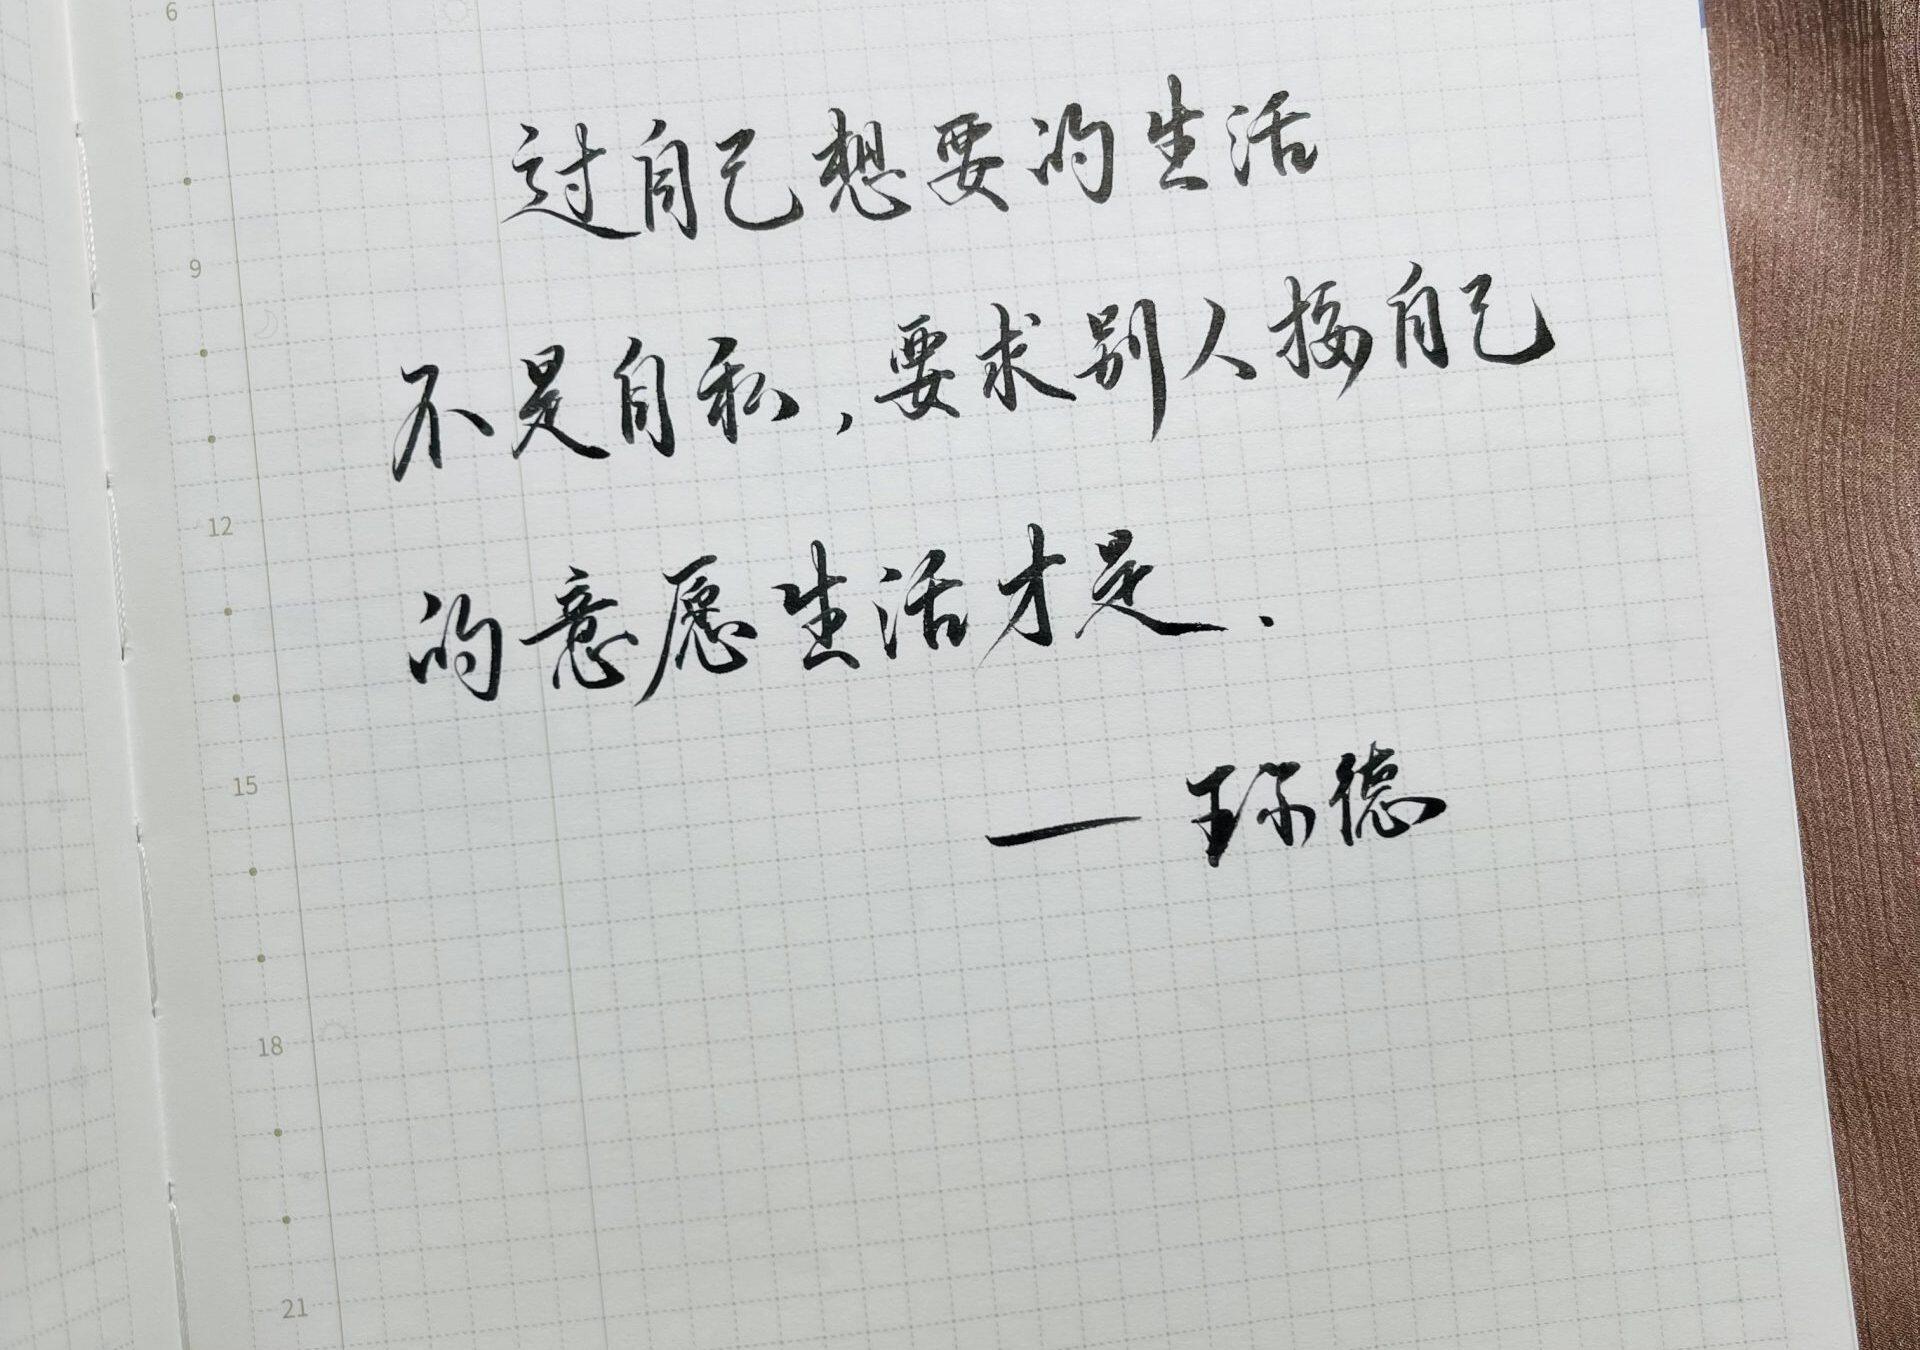 6
过自己想要的生活
9
不是自私,要求别人按自己
12
的意愿生活才是.
15
—王尔德
18
21